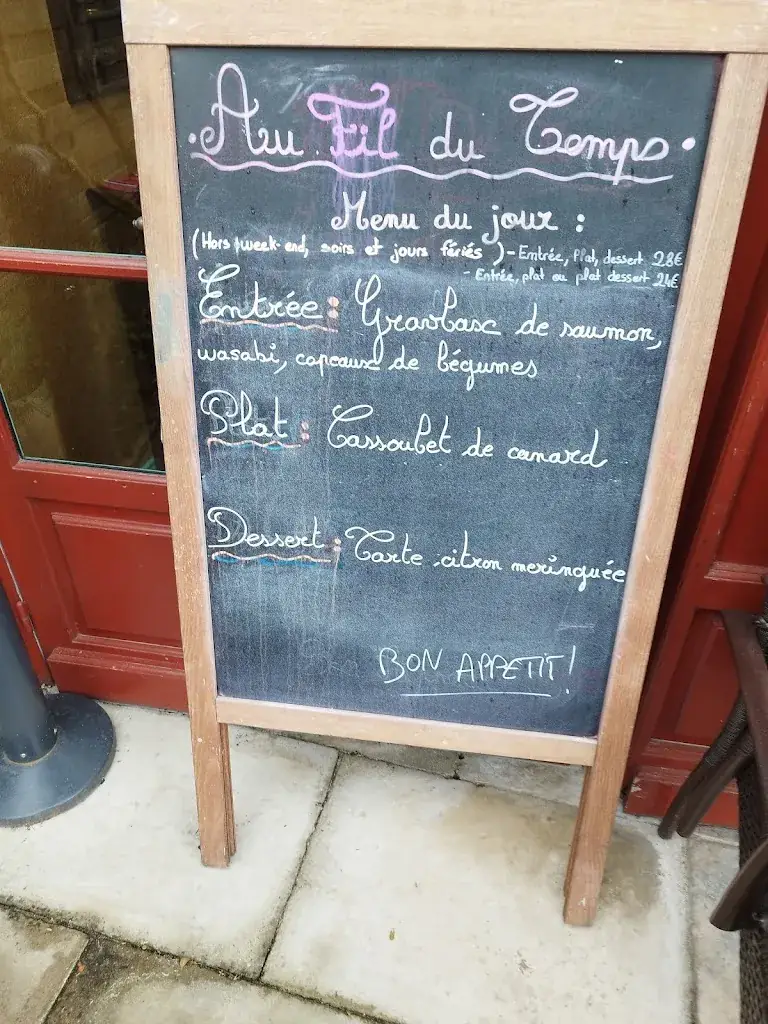 .Au Fil du Temps.
Menu du jour :
(Hors week-end, soirs et jours fériés) - Entrée, Plat, dessert 28€
- Entrée, plat ou plat dessert 24€
Entrée : Gravlasc de saumon,
wasabi, copeaux de légumes
Plat : Cassoulet de canard
Dessert : Tarte citron meringuée
BON APPETIT!